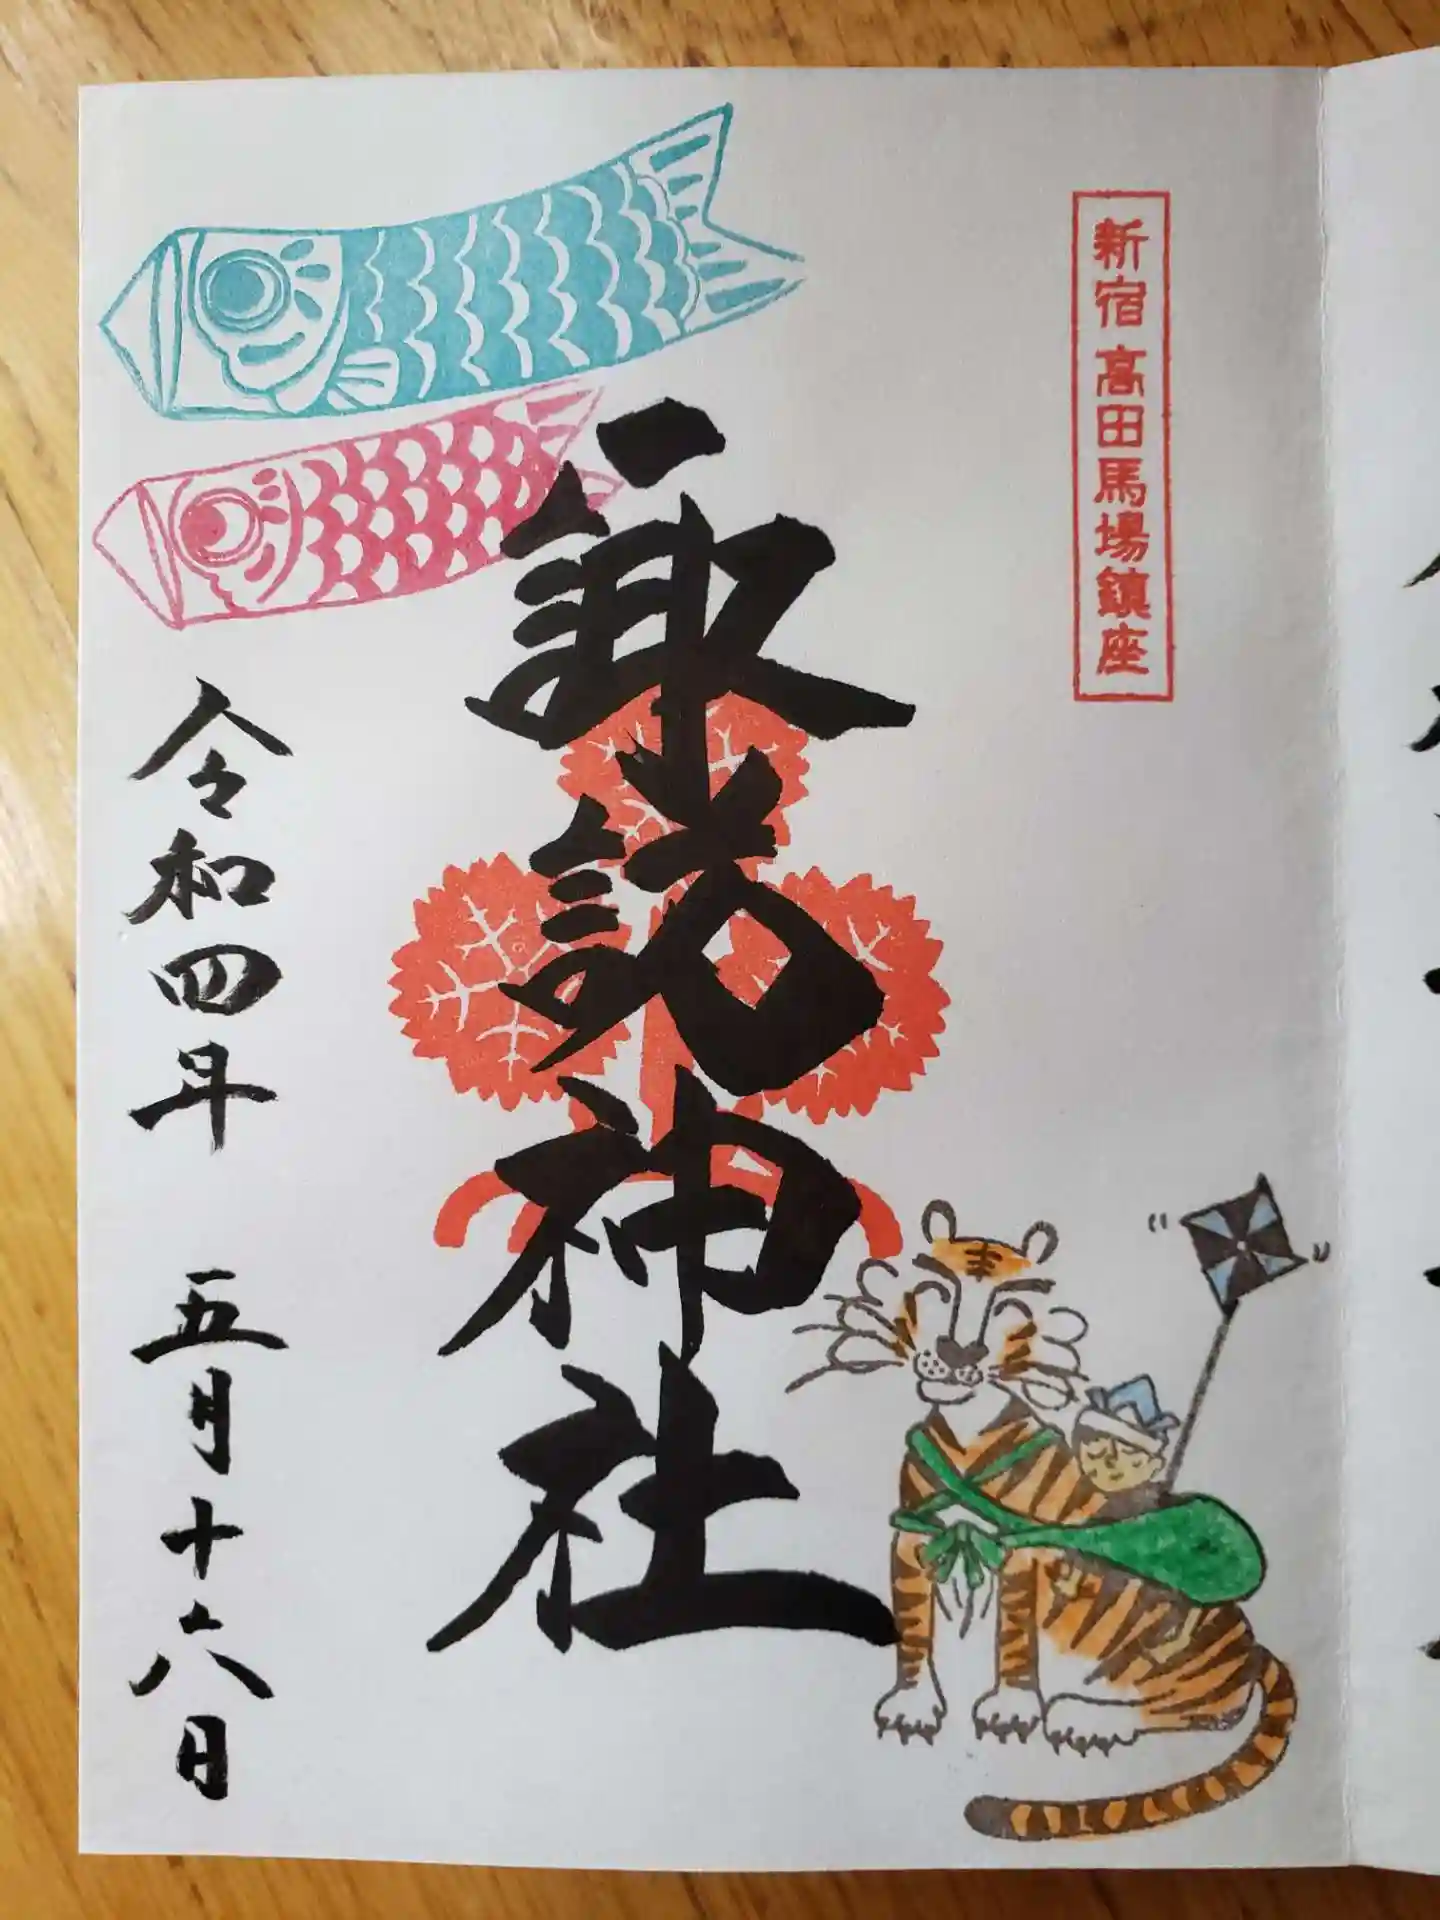 新宿高田馬場鎮座
諏訪神社
令和四年 五月十六日